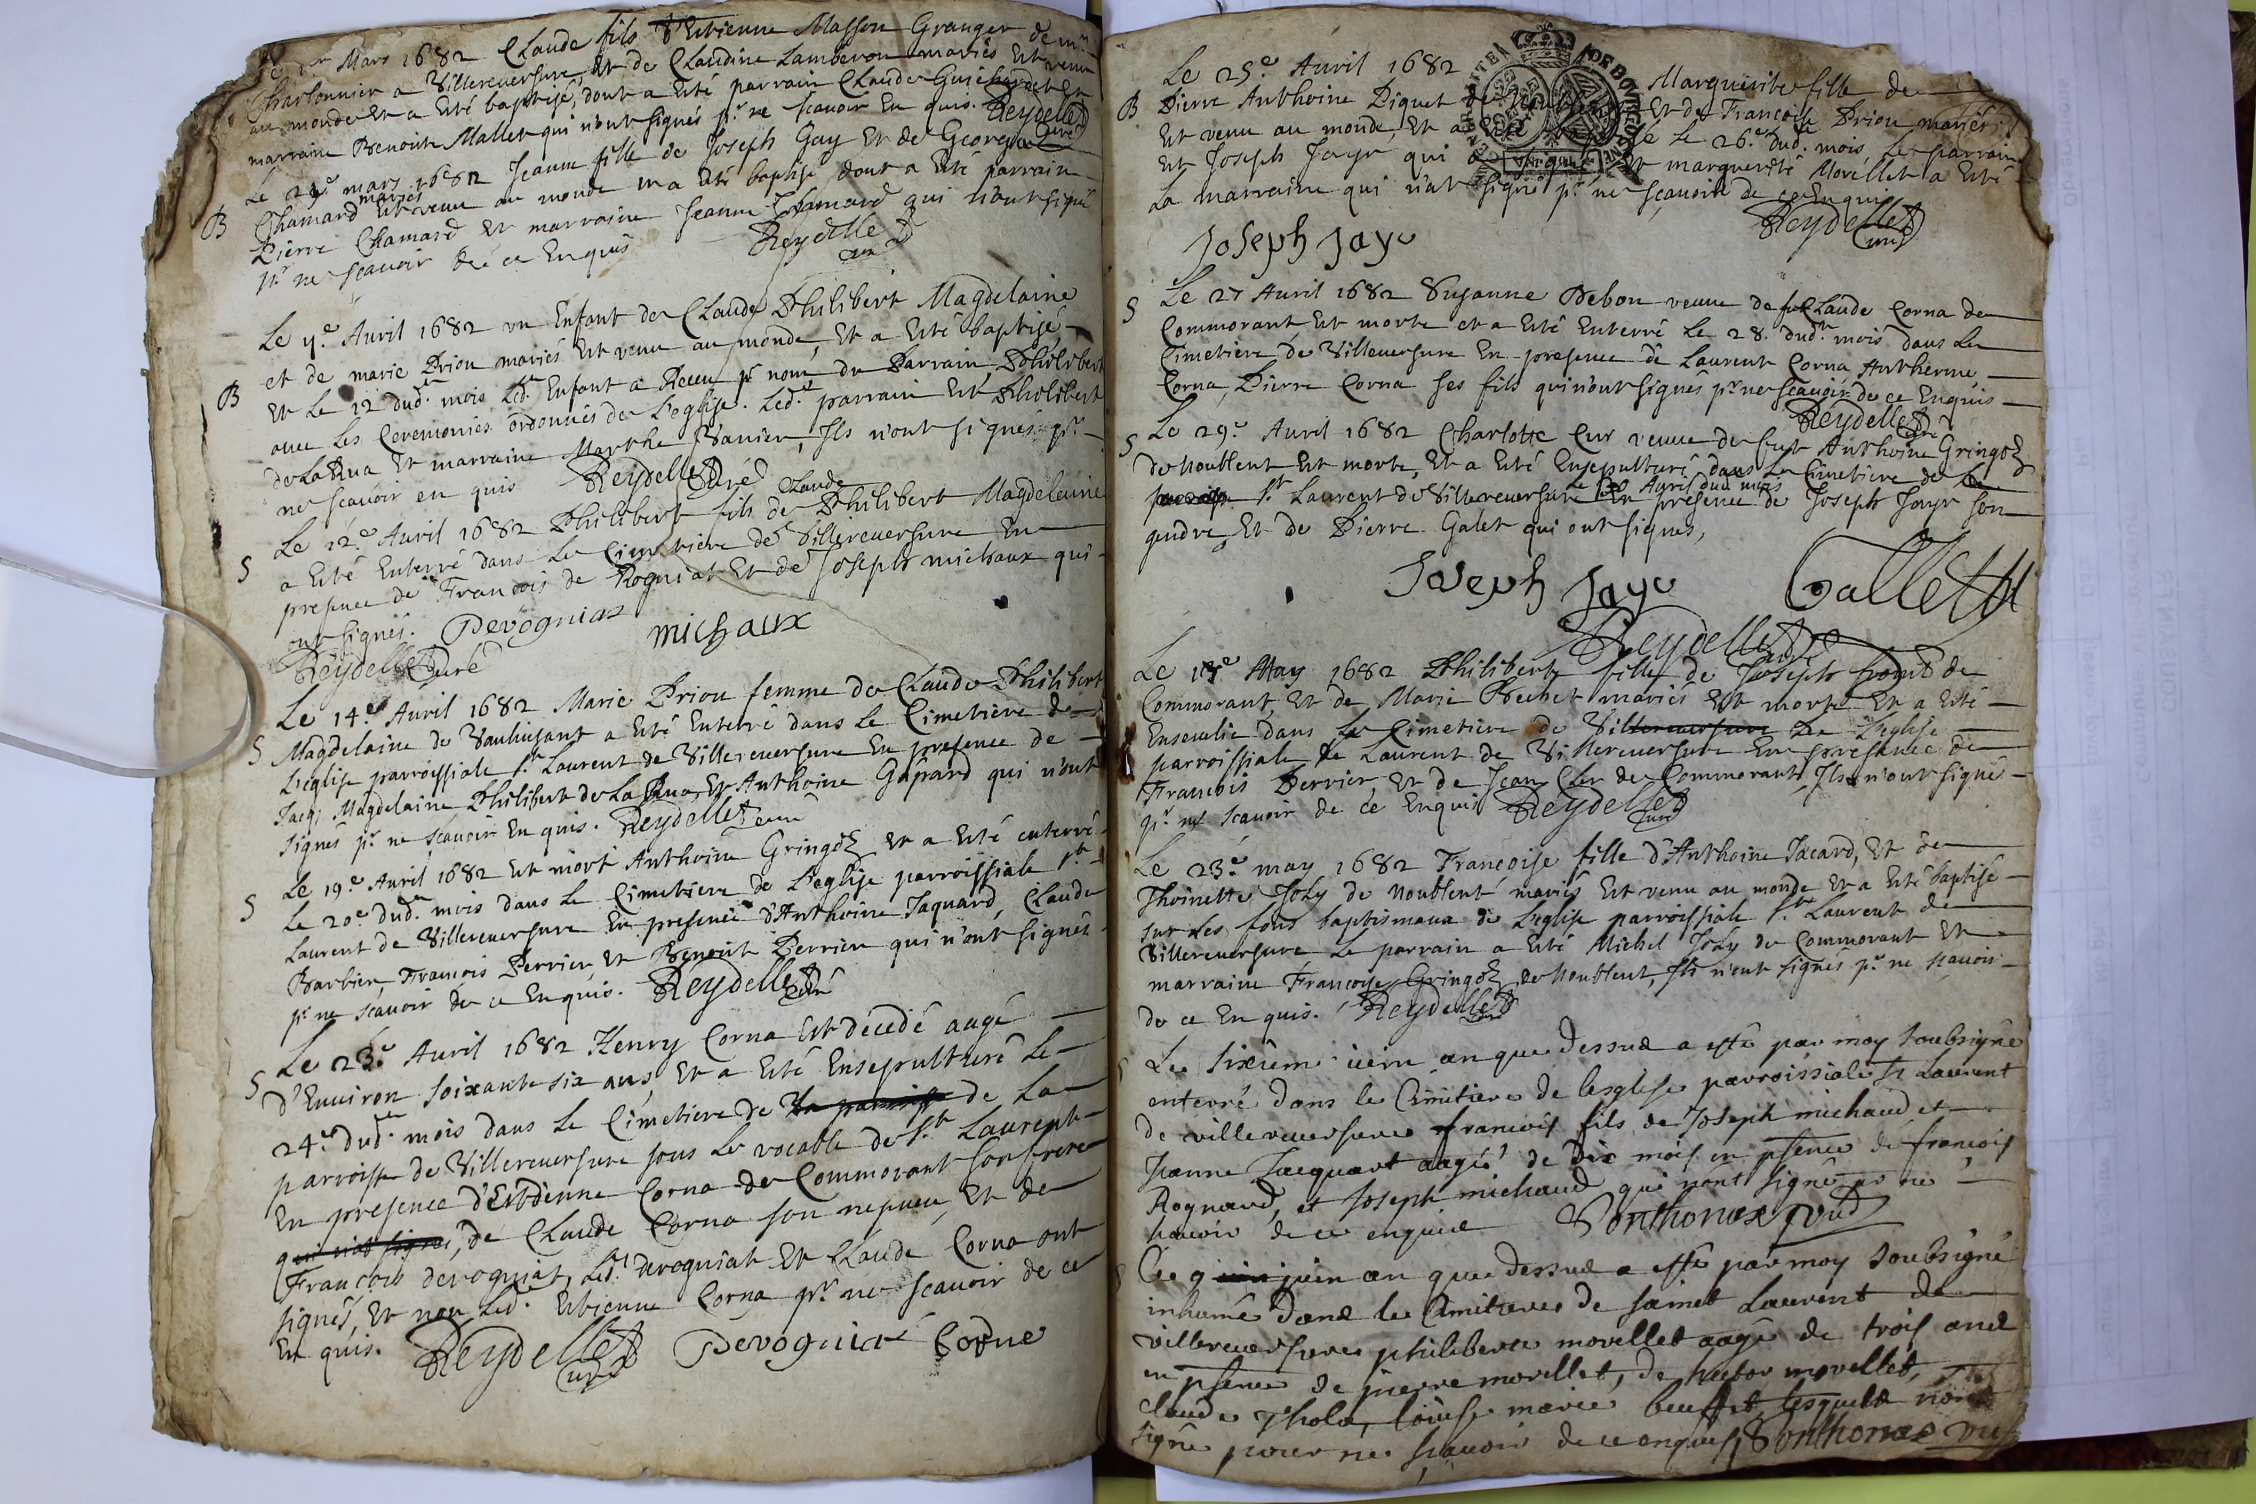 1er Mars 1682 Claude fils d'Estienne Masson Granger de
Charbonnier a Villereuersure, et de Claudine Lamberon mariés Est venu
au monde Et a Esté baptisé, dont a Esté parrain Claude Guichardet Et
marraine Benoite Mallet qui n'ont signés pr. ne scauoir En quis. Reydellet curé
B Le mars 1682 Jeanne fille de Joseph Gay Et de George
Chamard mariés Est venu au monde Et a Esté baptisé dont a Esté parrain
Pierre Chamard Et marraine Jeanne Chamard qui n'ont signé
pr. ne scauoir de ce Enquis Reydellet curé
Le Auril 1682 vn Enfant de Claude Philibert Magdelaine
B et de marie Priou mariés Est venu au monde, Et a Esté baptisé
Et Le 12 dud. mois Led. Enfant a Receu pr nom du Parrain Philibert
auec Les Ceremonies ordonnées de L'eglise. Led. parrain Est Philibert
de La Rua Et marraine Marthe Vanier, Ils n'ont signés pr.
ne scauoir en quis Reydellet Curé
S Le 12e. Auril 1682 Philibert fils de Claude Philibert Magdelaine
a Esté Enterré dans Le Cimetiere de Villereuersure En
presence de Francois de Rogniat Et de Joseph michaux qui
ont signés. Devogniat michaux
Reydellet Curé
S Le 14e. Auril 1682 Marie Priou femme de Claude Philibert
Magdelaine de Vauhuisant a Esté Enterré dans Le Cimetiere de
L'eglise parroissiale St. Laurent de Villereuersure En presence de
Jacq. Magdelaine Philibert de La Rua Et Anthoine Gaspard qui n'ont
signés pr. ne scauoir En quis. Reydellet curé
S Le 19e. Auril 1682 Est mort Anthoine Gringoz et a Esté enterré
Le 20e dud. mois dans Le Cimetiere de L'eglise parroissiale St.
Laurent de Villereuersure En presence d'Anthoine Jaquard, Claude
Barbier, Francois Perrier et Benoit Perrier qui n'ont signés
pr ne scauoir de ce Enquis. Reydellet Curé
S Le 23e. Auril 1682 Henry Corna Est décedé aagé
d'Enuiron soixante six ans, Et a Esté Ensepulturé Le
24e. dud. mois dans Le Cimetiere de la paroisse de La
parroisse de Villereuersure sous Le vocable de St. Laurent
En presence d'Estienne Corna de Commorant son frere
qui n'at signé, de Claude Corna son nepueu, Et de
Francois devogniat, Led. devogniat Et Claude Corna ont
signés, Et non Led. Estienne Corna pr. ne scauoir de ce
En quis. Reydellet curé Devogniat Corne
Le 25e. Auril 1682 Marguerite fille de
B Pierre Anthoine Piquet de Et de Francoise Priou mariés
Est venu au monde, Et a Esté Le 26e. dud. mois, Le parrain
Est Joseph Jayr qui a signé Et marguerite Morellet a Esté
La marraine qui n'at signé pr. ne scauoir de ce Enquis
Joseph Jayr Reydellet curé
S Le 27 Auril 1682 Susanne Debou veuue de fut Claude Corna de
Commorant Est morte et a Esté Enterré Le 28. dud. mois dans Le
Cimetiere de Villereuersure En presence de Laurent Corna Anthelme
Corna, Pierre Corna ses fils qui n'ont signés pr. ne scauoir de ce Enquis
Reydellet curé
S Le 29e. Auril 1682 Charlotte Cur veuue de feut Anthoine Gringoz
de Noublent Est morte, Et a Esté Ensepulturé dans Le Cimetiere de
St Laurent de Villereuersure Le Auril dud. mois En presence de Joseph Jayr son
gendre, Et de Pierre Galet qui ont signés,
Joseph Jayr Gallet
Reydellet curé
Le May 1682 Philiberte fille de Joseph de
Commorant, Et de Marie Bechet mariés Est morte Et a Esté
Enseuelie dans Le Cimetiere de Villereuersure De L'eglise
parroissiale de Laurent de Villereuersure En presence de
Francois Perrier, et de Jean de Commorant, Ils n'ont signé
pr. ne scauoir de ce Enquis Reydellet curé
Le 23e. may 1682 Francoise fille d'Anthoine Jacard, Et de
Thoinette Joly de Noublent mariés Est venu au monde Et a Esté baptisé
sur Les fons baptismaux de L'eglise parroissiale St. Laurent de
Villereuersure Le parrain a Esté Michel Joly de Commorant Et
marraine Francoise Gringoz de Noublent, Ils n'ont signés pr. ne scauoir
de ce En quis. Reydellet curé
Le sixiem iuin an que dessus a esté par moy soubsigné
enterré dans le Cimitiere de lesglise parroissiale St Laurent
de villereuersure francois fils de Joseph michaud et
Jeanne Jacquart aagé de dix mois en psence de francois
Rognard, et Joseph michaud qui n'ont signé pr ne
scauoir de ce enquis Vonthonax
Ce 9 iuin juin an que dessus a esté par moy soubsigné
inhumé dans le Cimitiere de sainct Laurent de
villereuersure philiberte morellet aagée de trois ans
en psence de pierre morellet, de hector morellet,
claude Thola, louise marie lesquels n'ont
signé pour ne scauoir de ce enquis Vonthonax